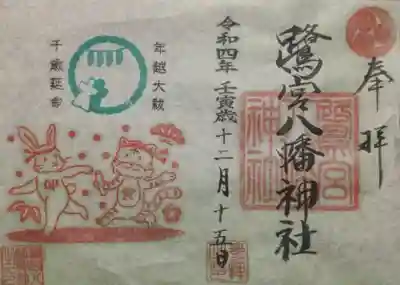 奉拝
鷺宮八幡神社
令和四年 壬寅歳 十二月 十五日
年越大祓
千歳延命